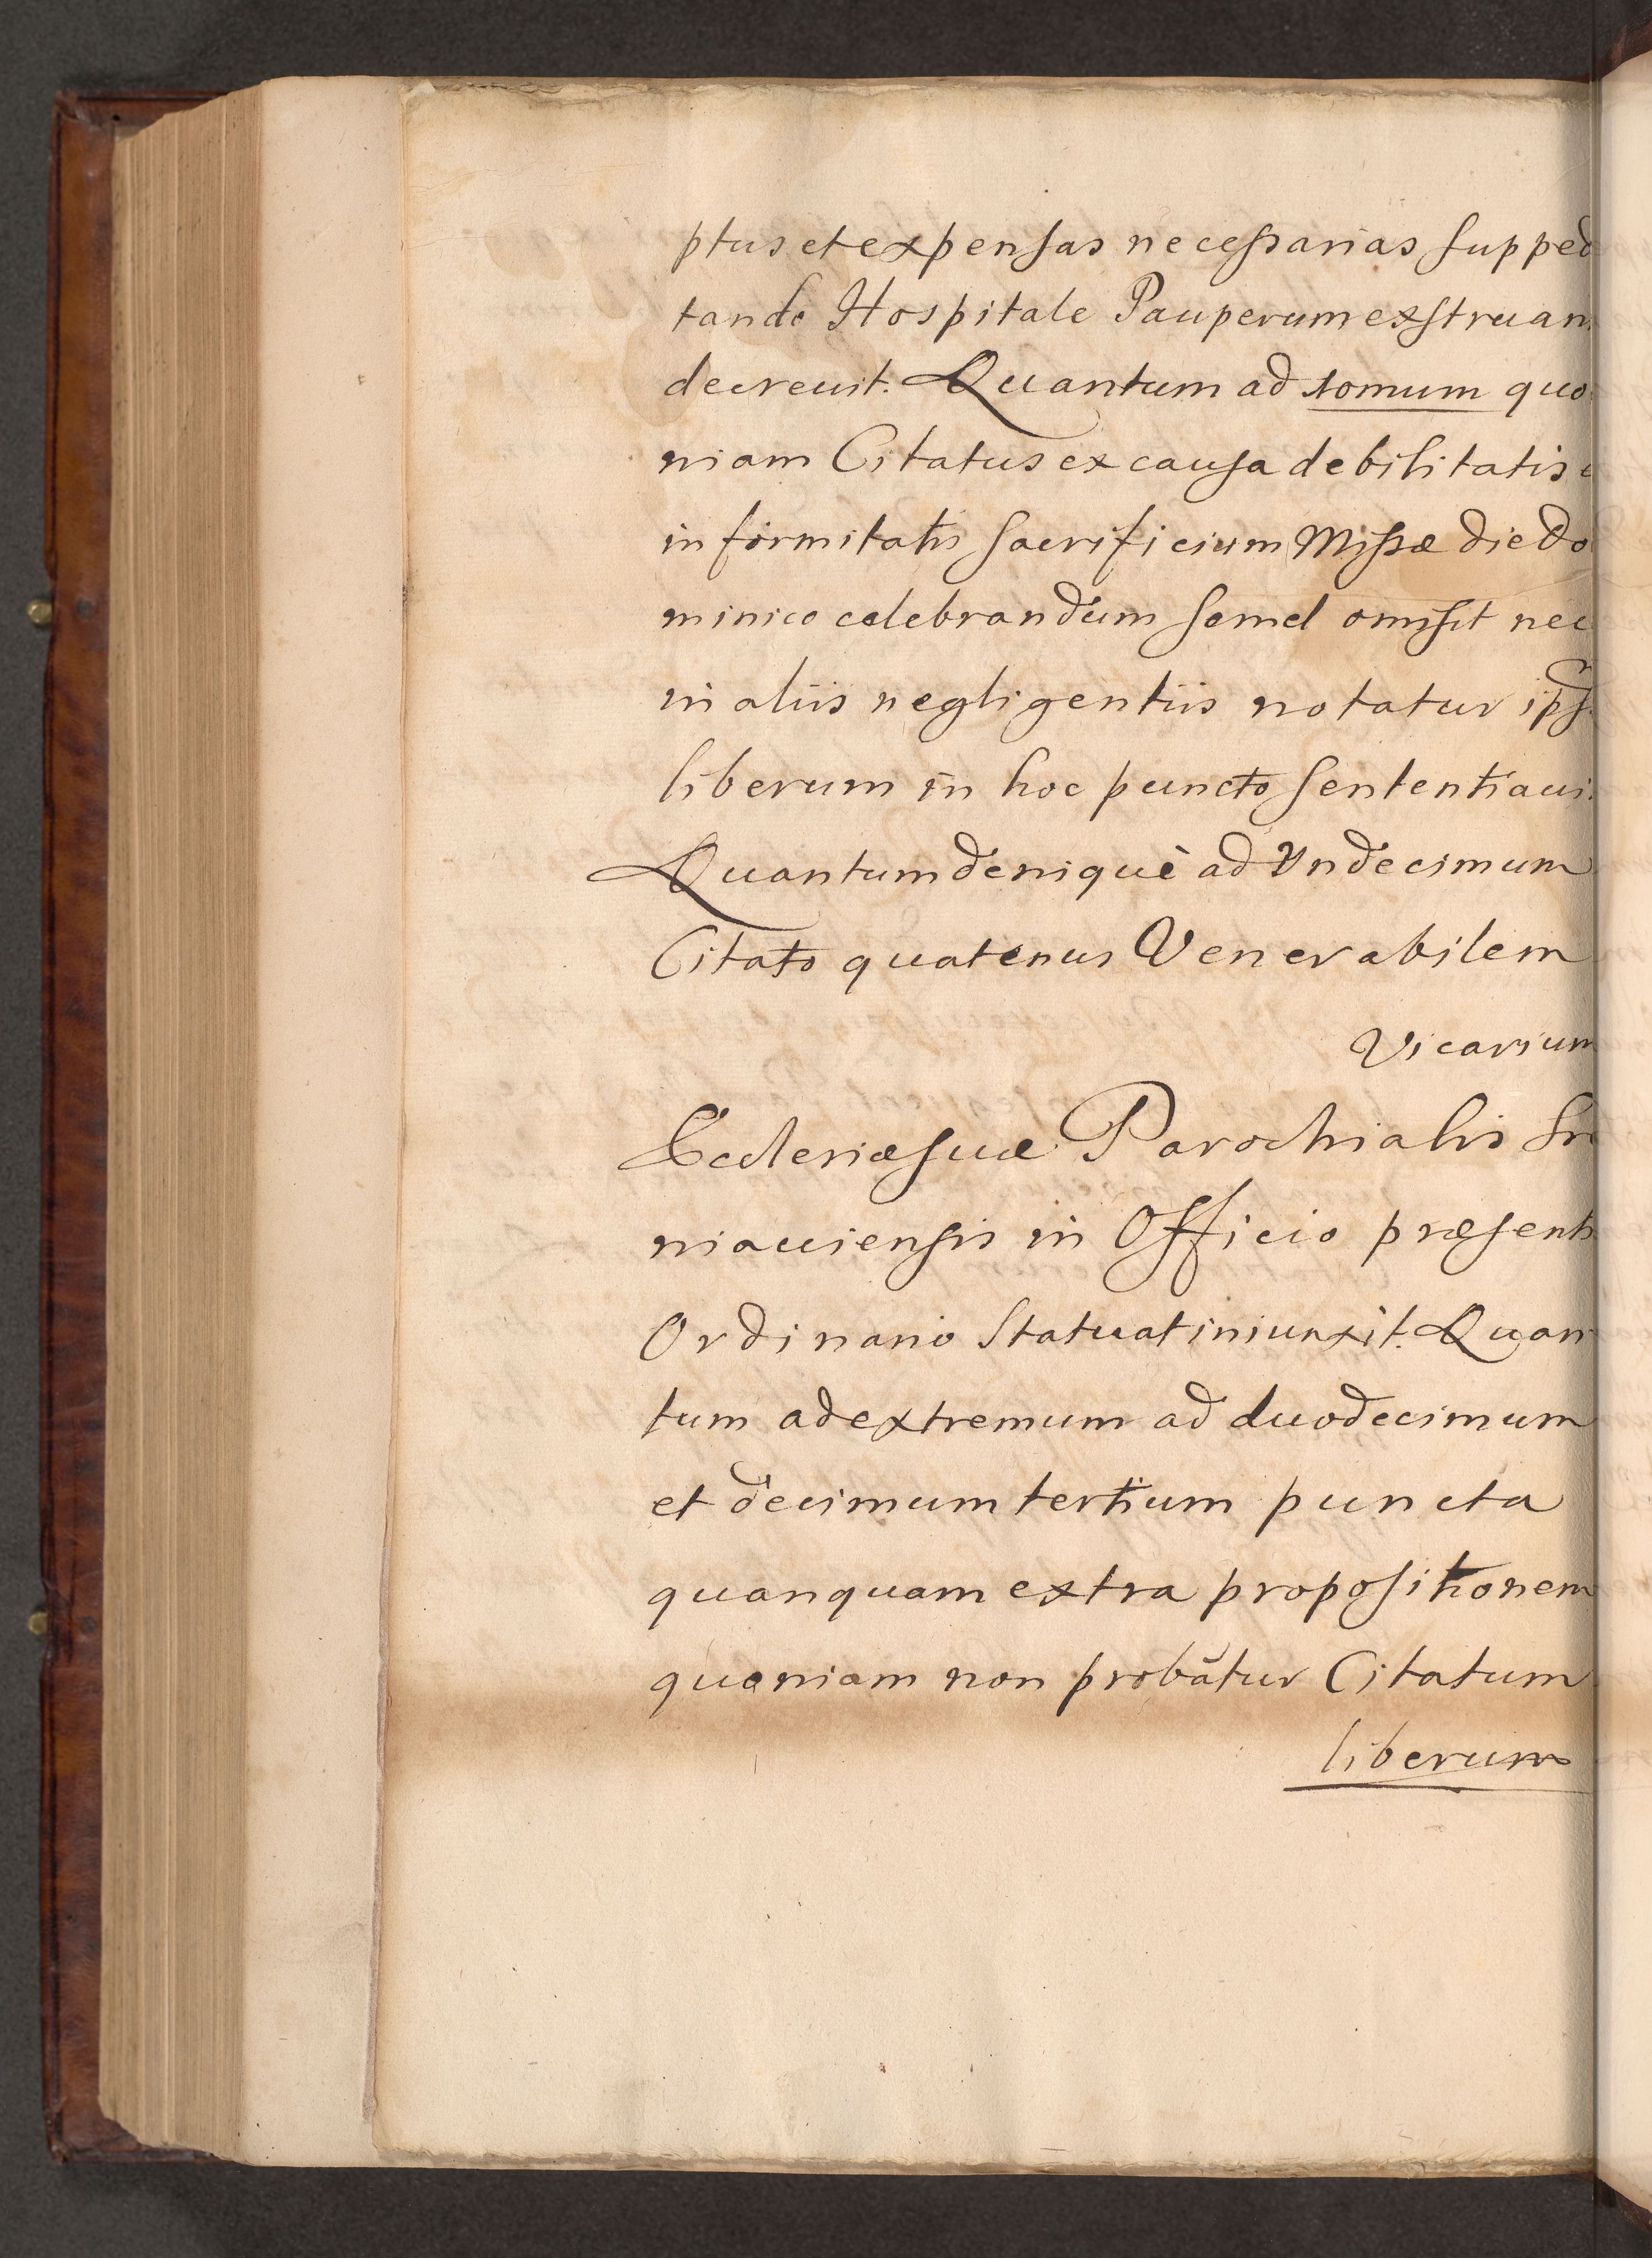 ptus et expensas necessarias supped
tando Hospitale Pauperum exstruan
decreuit. Quantum ad 10mum quo
niam Citatus ex causa debilitatis
infirmitatis sacrificium Missæ die Do
minico celebrandum semel omisit nec
in aliis negligentiis notatur ips
liberum in hoc puncto sententiaui
Quantum deniquè ad Vndecimum
Citato quatenus Venerabilem
Vicarium
Ecclesiæ suæ Parochialis
niauiensis in Officio præsenti
Ordinario statuat iniunxit. Quan
tum ad extremum ad duodecimum
et decimum tertium puncta
quanquam extra propositionem
quoniam non probãtur Citatum
liberum